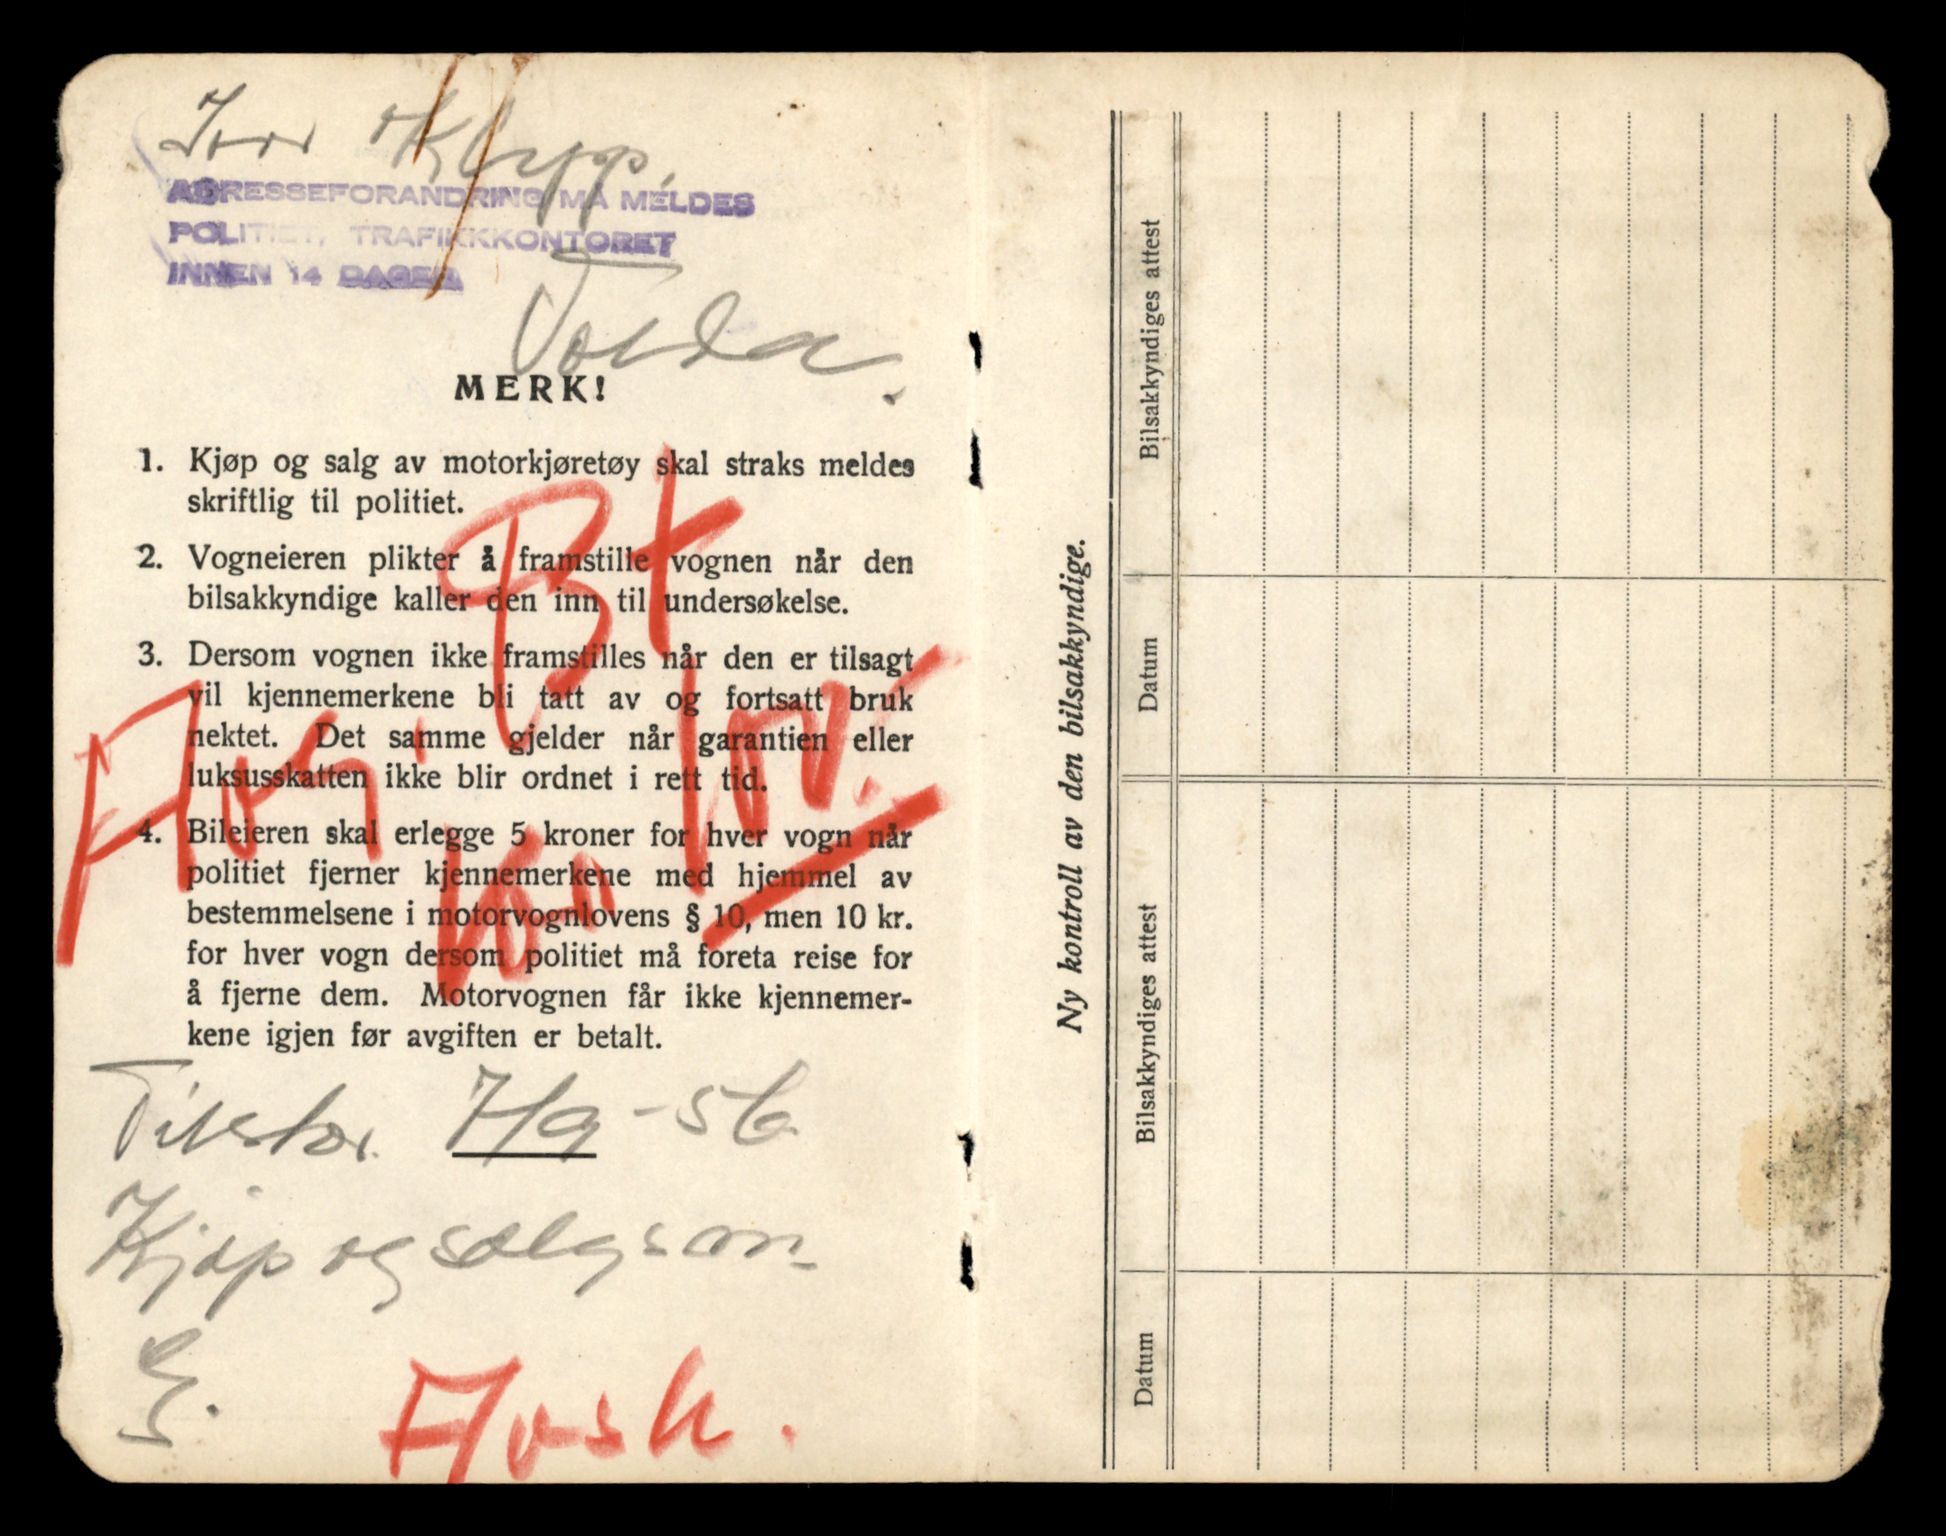 Ivar Klypp.
ADRESSEFORANDRING MÅ MELDES
POLITIET, TRAFIKKKONTORET
INNEN 14 DAGER
Volda.
MERK!
1. Kjøp og salg av motorkjøretøy skal straks meldes
skriftlig til politiet.
2. Vogneieren plikter å framstille vognen når den
bilsakkyndige kaller den inn til undersøkelse.
3. Dersom vognen ikke framstilles når den er tilsagt
vil kjennemerkene bli tatt av og fortsatt bruk
nektet. Det samme gjelder når garantien eller
luksusskatten ikke blir ordnet i rett tid.
4. Bileieren skal erlegge 5 kroner for hver vogn når
politiet fjerner kjennemerkene med hjemmel av
bestemmelsene i motorvognlovens § 10, men 10 kr.
for hver vogn dersom politiet må foreta reise for
å fjerne dem. Motorvognen får ikke kjennemer-
kene igjen før avgiften er betalt.
Bt
7/9-56
Kjøp og salgsan
Ny kontroll av den bilsakkyndige.
Bilsakkyndiges attest
Datum
Bilsakkyndiges attest
Datum